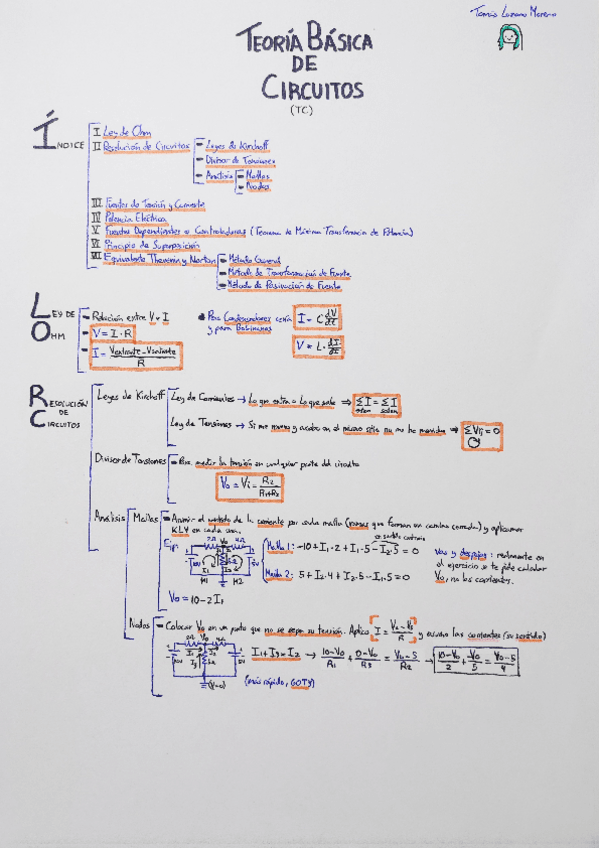 Tomás Lozano Moreno
TEORÍA BÁSICA
DE
CIRCUITOS
(TC)
ÍNDICE
I Ley de Ohm
II Resolución de Circuitos - Leyes de Kirchoff
- Divisor de Tensiones
- Análisis - Mallas
- Nodos
III Fuentes de Tensión y Corriente
IV Potencia Eléctrica
V Fuentes Dependientes o Controladoras (Teorema de Máxima Transferencia de Potencia)
VI Principio de Superposición
VII Equivalente Thevenin y Norton - Método General
- Método de Transformación de Fuente
- Método de Pasivación de Fuente
LEY DE OHM
- Relación entre V e I
- V = I · R
- I = Ventrante - Vsaliente / R
• Para Condensadores sería I = C dV/dt
y para Bobinas V = L · dI/dt
RESOLUCIÓN DE CIRCUITOS
Leyes de Kirchoff
Ley de Corrientes → Lo que entra = Lo que sale ⇒ ΣI = ΣI
entran salen
Ley de Tensiones → Si me muevo y acabo en el mismo sitio no me he movido ⇒ ΣVij = 0
Divisor de Tensiones - Para medir la tensión en cualquier parte del circuito
Vo = Vi = R2 / R1+R2
Análisis
Mallas - Asumir el sentido de la corriente por cada malla (ramas que forman un camino cerrado) y aplicamos
KLV en cada una.
Ejm:
2Ω Vo 4Ω
10V I1 5Ω I2 5V
M1 M2
en sentido contrario
Malla 1: -10+I1·2+I1·5-I2·5 = 0
Malla 2: 5+I2·4+I2·5-I1·5 = 0
Vo = 10-2I1
: realmente en
el ejercicio se te pide calcular
Vo, no las corrientes.
Nodos - Colocar Vo en un punto que no se sepa su tensión. Aplico I = Va-Vb / R y sumo las corrientes (su sentido)
2Ω Vo 4Ω
10V I1 I2 I3 5Ω 5V
(V=0)
I1+I3=I2 → 10-Vo/R1 + 0-Vo/R3 = Vo-5/R2 → 10-Vo/2 + -Vo/5 = Vo-5/4
(más rápido, GOTY)